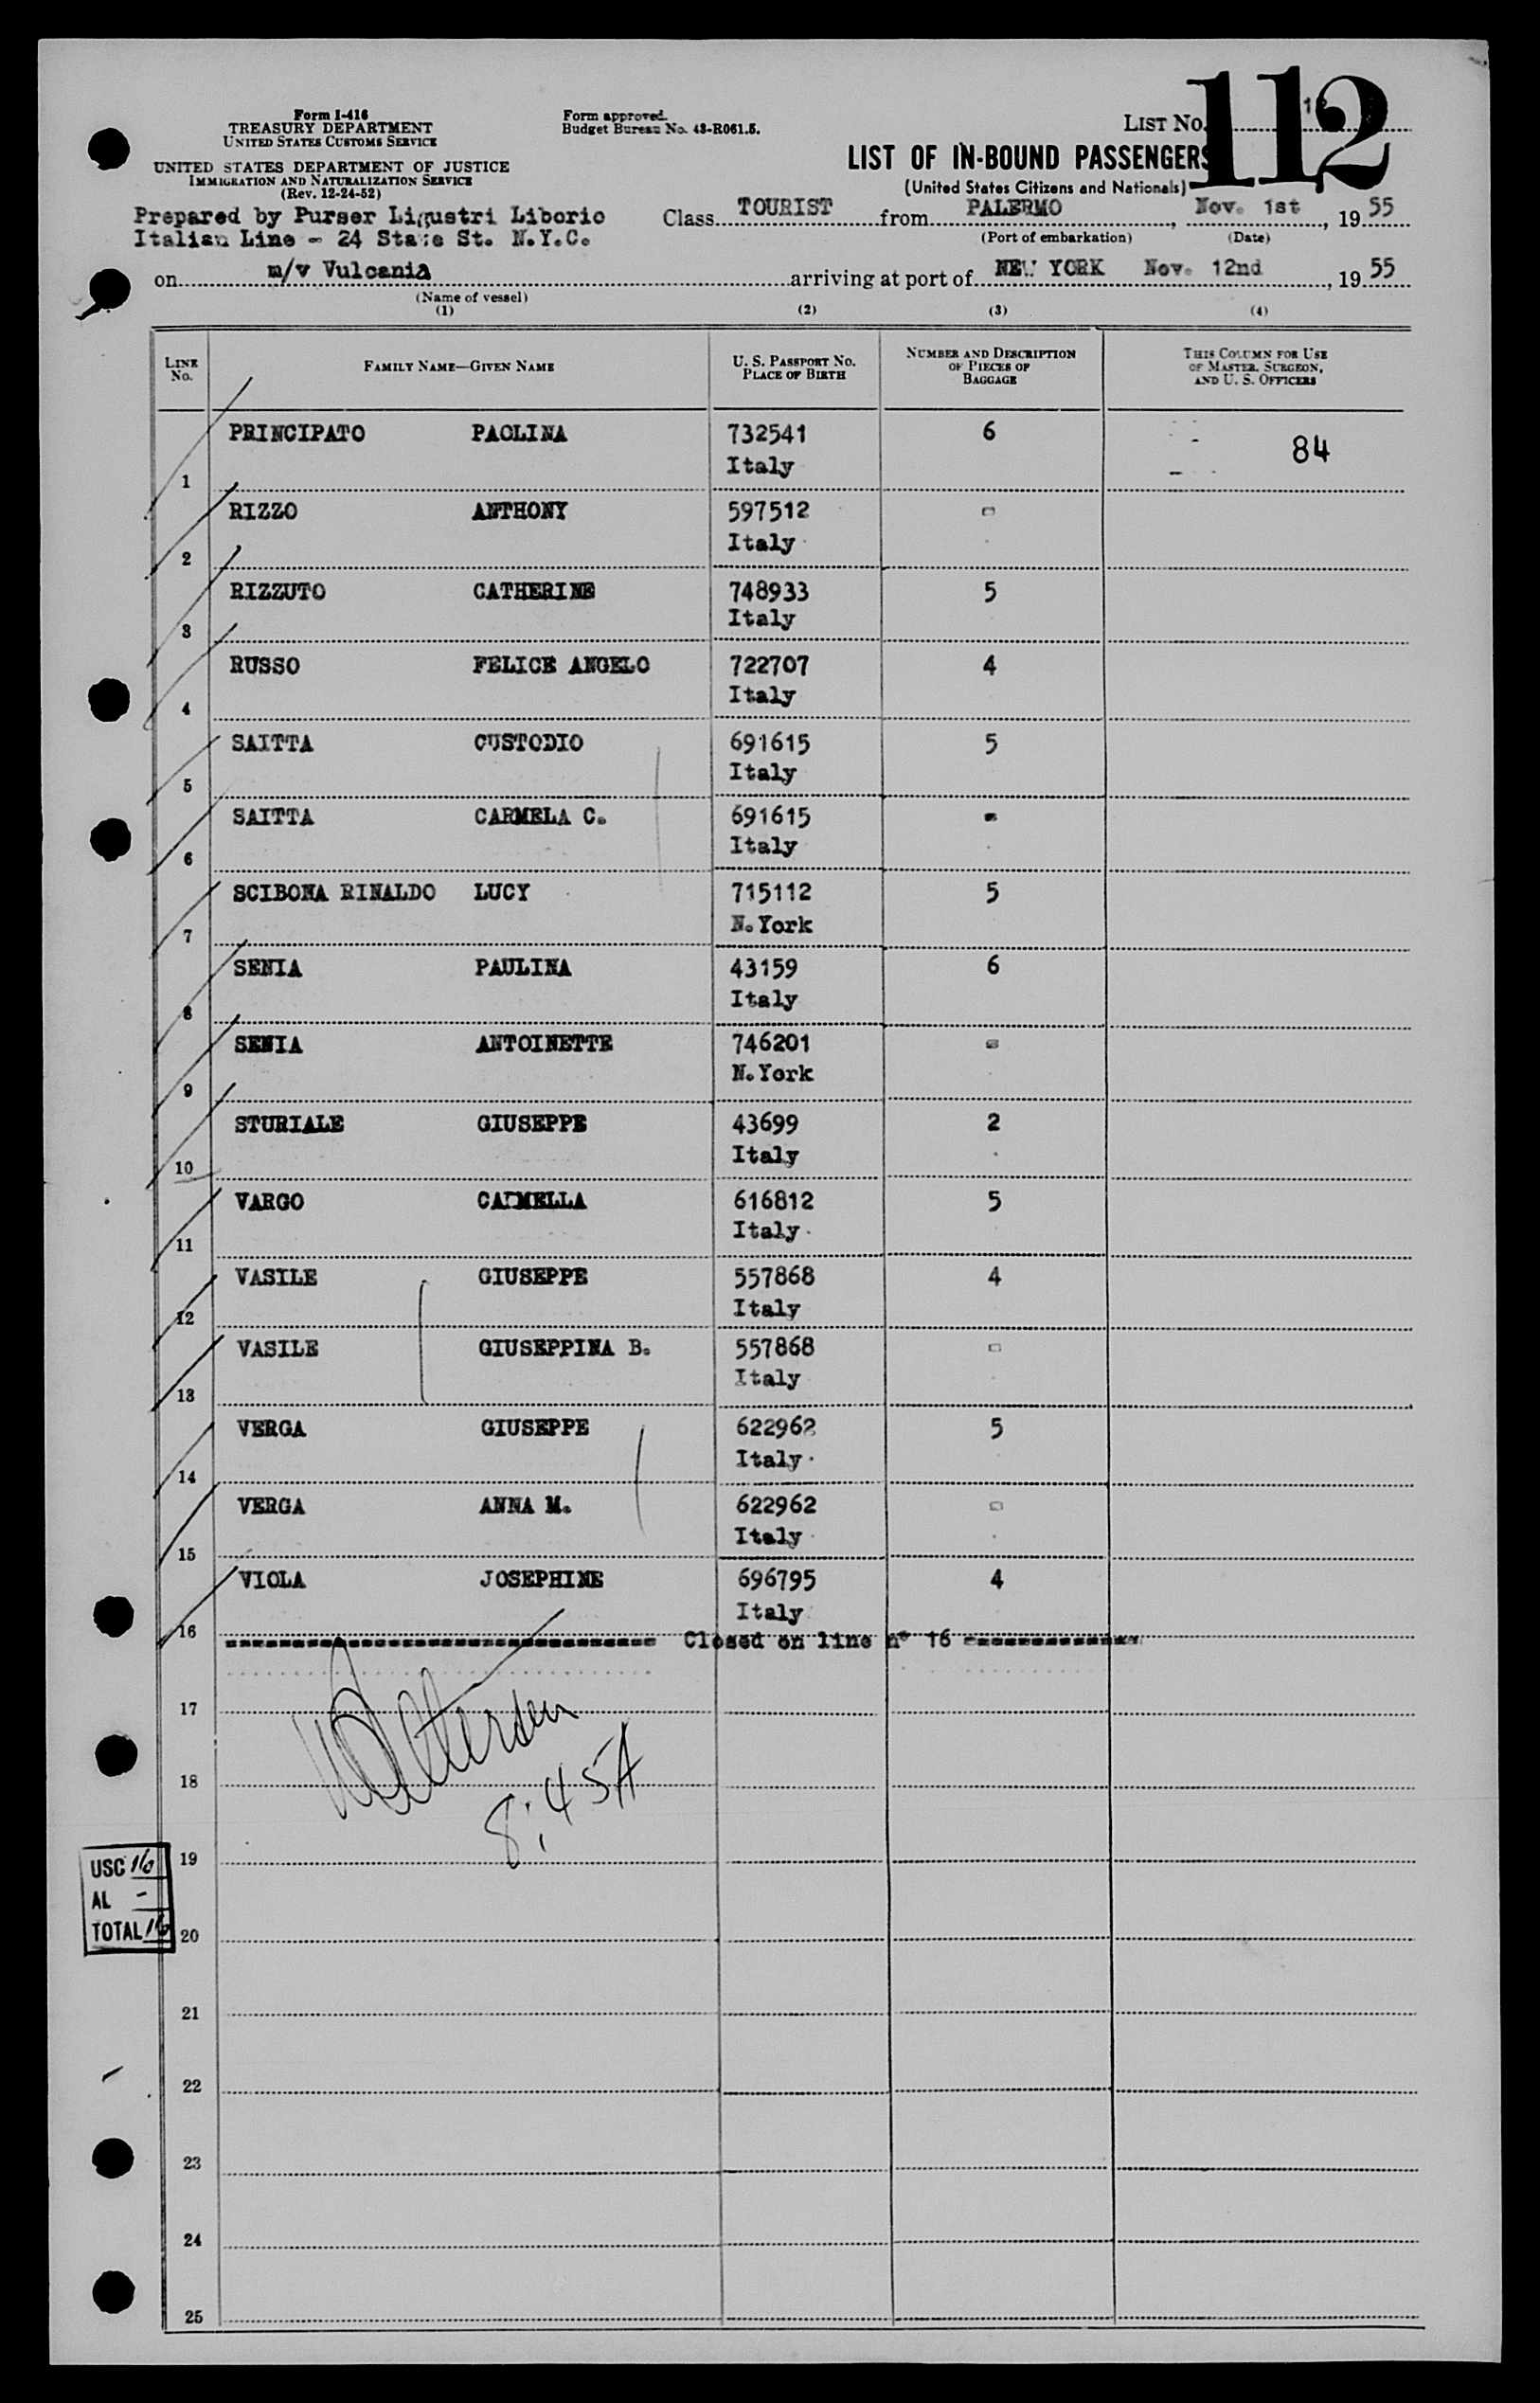 112
Form I-416
TREASURY DEPARTMENT
UNITED STATES CUSTOMS SERVICE
Form approved.
Budget Bureau No. 43-R061.5.
LIST NO.
UNITED STATES DEPARTMENT OF JUSTICE
IMMIGRATION AND NATURALIZATION SERVICE
(Rev. 12-24-52)
LIST OF IN-BOUND PASSENGERS
(United States Citizens and Nationals)
Prepared by Purser Ligustri Liborio
Italian Line - 24 State St. N.Y.C.
Class TOURIST from PALERMO, Nov. 1st, 1955
(Port of embarkation) (Date)
on m/v Vulcania arriving at port of NEW YORK Nov. 12nd, 1955
(Name of vessel)
(1) (2) (3) (4)
LINE No. FAMILY NAME—GIVEN NAME U. S. PASSPORT NO. PLACE OF BIRTH NUMBER AND DESCRIPTION OF PIECES OF BAGGAGE THIS COLUMN FOR USE OF MASTER, SURGEON, AND U. S. OFFICERS
PRINCIPATO PAOLINA 732541 6 84
1 Italy
RIZZO ANTHONY 597512 -
2 Italy
RIZZUTO CATHERINE 748933 5
3 Italy
RUSSO FELICE ANGELO 722707 4
4 Italy
SAITTA CUSTODIO 691615 5
5 Italy
SAITTA CARMELA C. 691615 -
6 Italy
SCIBONA RINALDO LUCY 715112 5
7 N.York
SENIA PAULINA 43159 6
8 Italy
SENIA ANTOINETTE 746201 -
9 N.York
STURIALE GIUSEPPE 43699 2
10 Italy
VARGO CARMELLA 616812 5
11 Italy
VASILE GIUSEPPE 557868 4
12 Italy
VASILE GIUSEPPINA B. 557868 -
13 Italy
VERGA GIUSEPPE 622962 5
14 Italy
VERGA ANNA M. 622962 -
15 Italy
VIOLA JOSEPHINE 696795 4
16 Italy
Closed on line n° 16
17
18
8:45A
19
USC 16
AL -
TOTAL 16
20
21
22
23
24
25